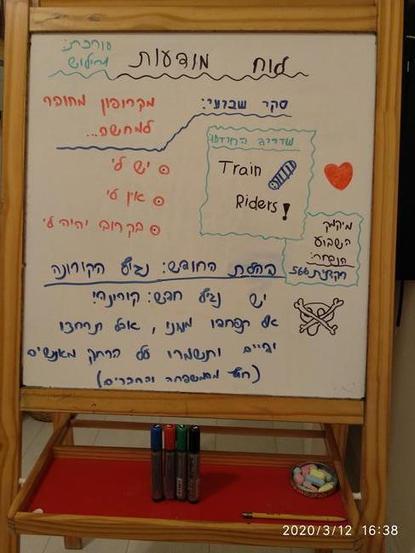 עורכת:
לוח מודעות
סקר שבועי:
מקרופון מחובר
למחשב...
יש לי
אין לי
בקרוב יהיה לי
Train
Riders!
השבוע
בהלת החודש: נגיף הקורונה
יש נגיף חדש: קורונה!
אל תפחדו ממנו, אבל תרחצו
ידיים ותשמרו על הרחק מאנשים
(חוץ מהמשפחה והחברים)
2020/3/12 16:38